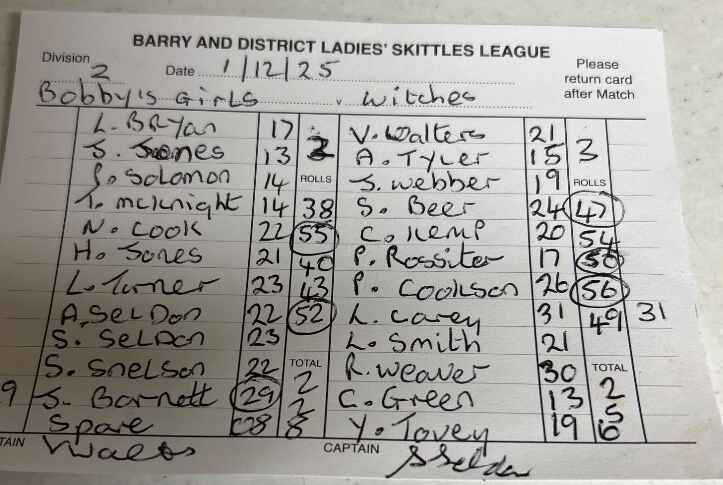 BARRY AND DISTRICT LADIES' SKITTLES LEAGUE
Division 2 Date 1/12/25 Please return card after Match
Bobby's Girls v Witches
L. Bryan 17 2 V. Walters 21 3
S. Jones 13 A. Tyler 15
S. Solomon 14 ROLLS S. Webber 19 ROLLS
T. McKnight 14 38 S. Beer 24 47
N. Cook 22 55 C. Kemp 20 54
H. Jones 21 40 P. Rossiter 17 50
L. Turner 23 43 P. Cookson 26 56
A. Seldon 22 52 L. Carey 31 49 31
S. Seldon 23 L. Smith 21
S. Snelson 22 TOTAL R. Weaver 30 TOTAL
9 S. Barnett 29 2 C. Green 13 2
Spare 08 2 8 Y. Tovey 19 5 6
TAIN CAPTAIN